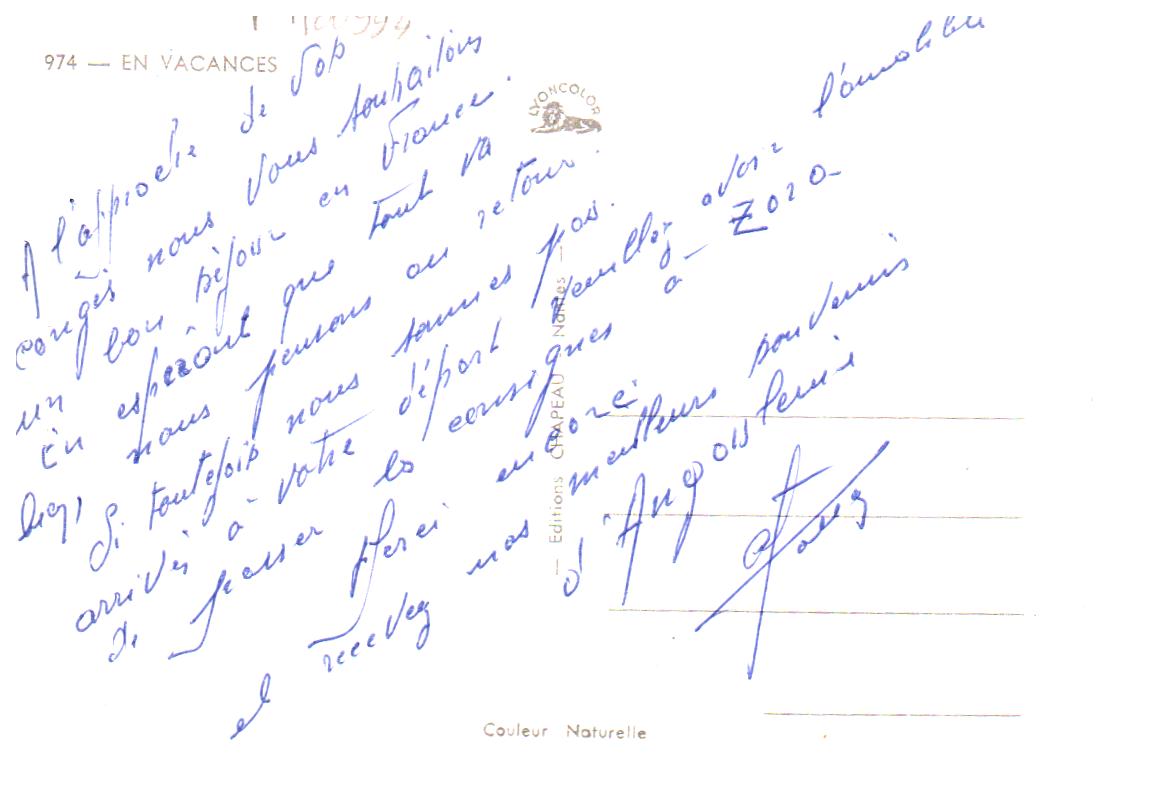 974 — EN VACANCES
LYONCOLOR
A l'approche de vos
congés nous vous souhaitons
un bon séjour en France.
En espérant que tout va
bien, nous pensons au retour.
Si toutefois nous sommes pas
arrivés à votre départ veuillez avoir l'amabilité
de passer les consignes à Zoro
Merci encore
et recevez nos meilleurs souvenirs
d'Angoulême
— Editions CHAPEAU Nantes —
Couleur Naturelle